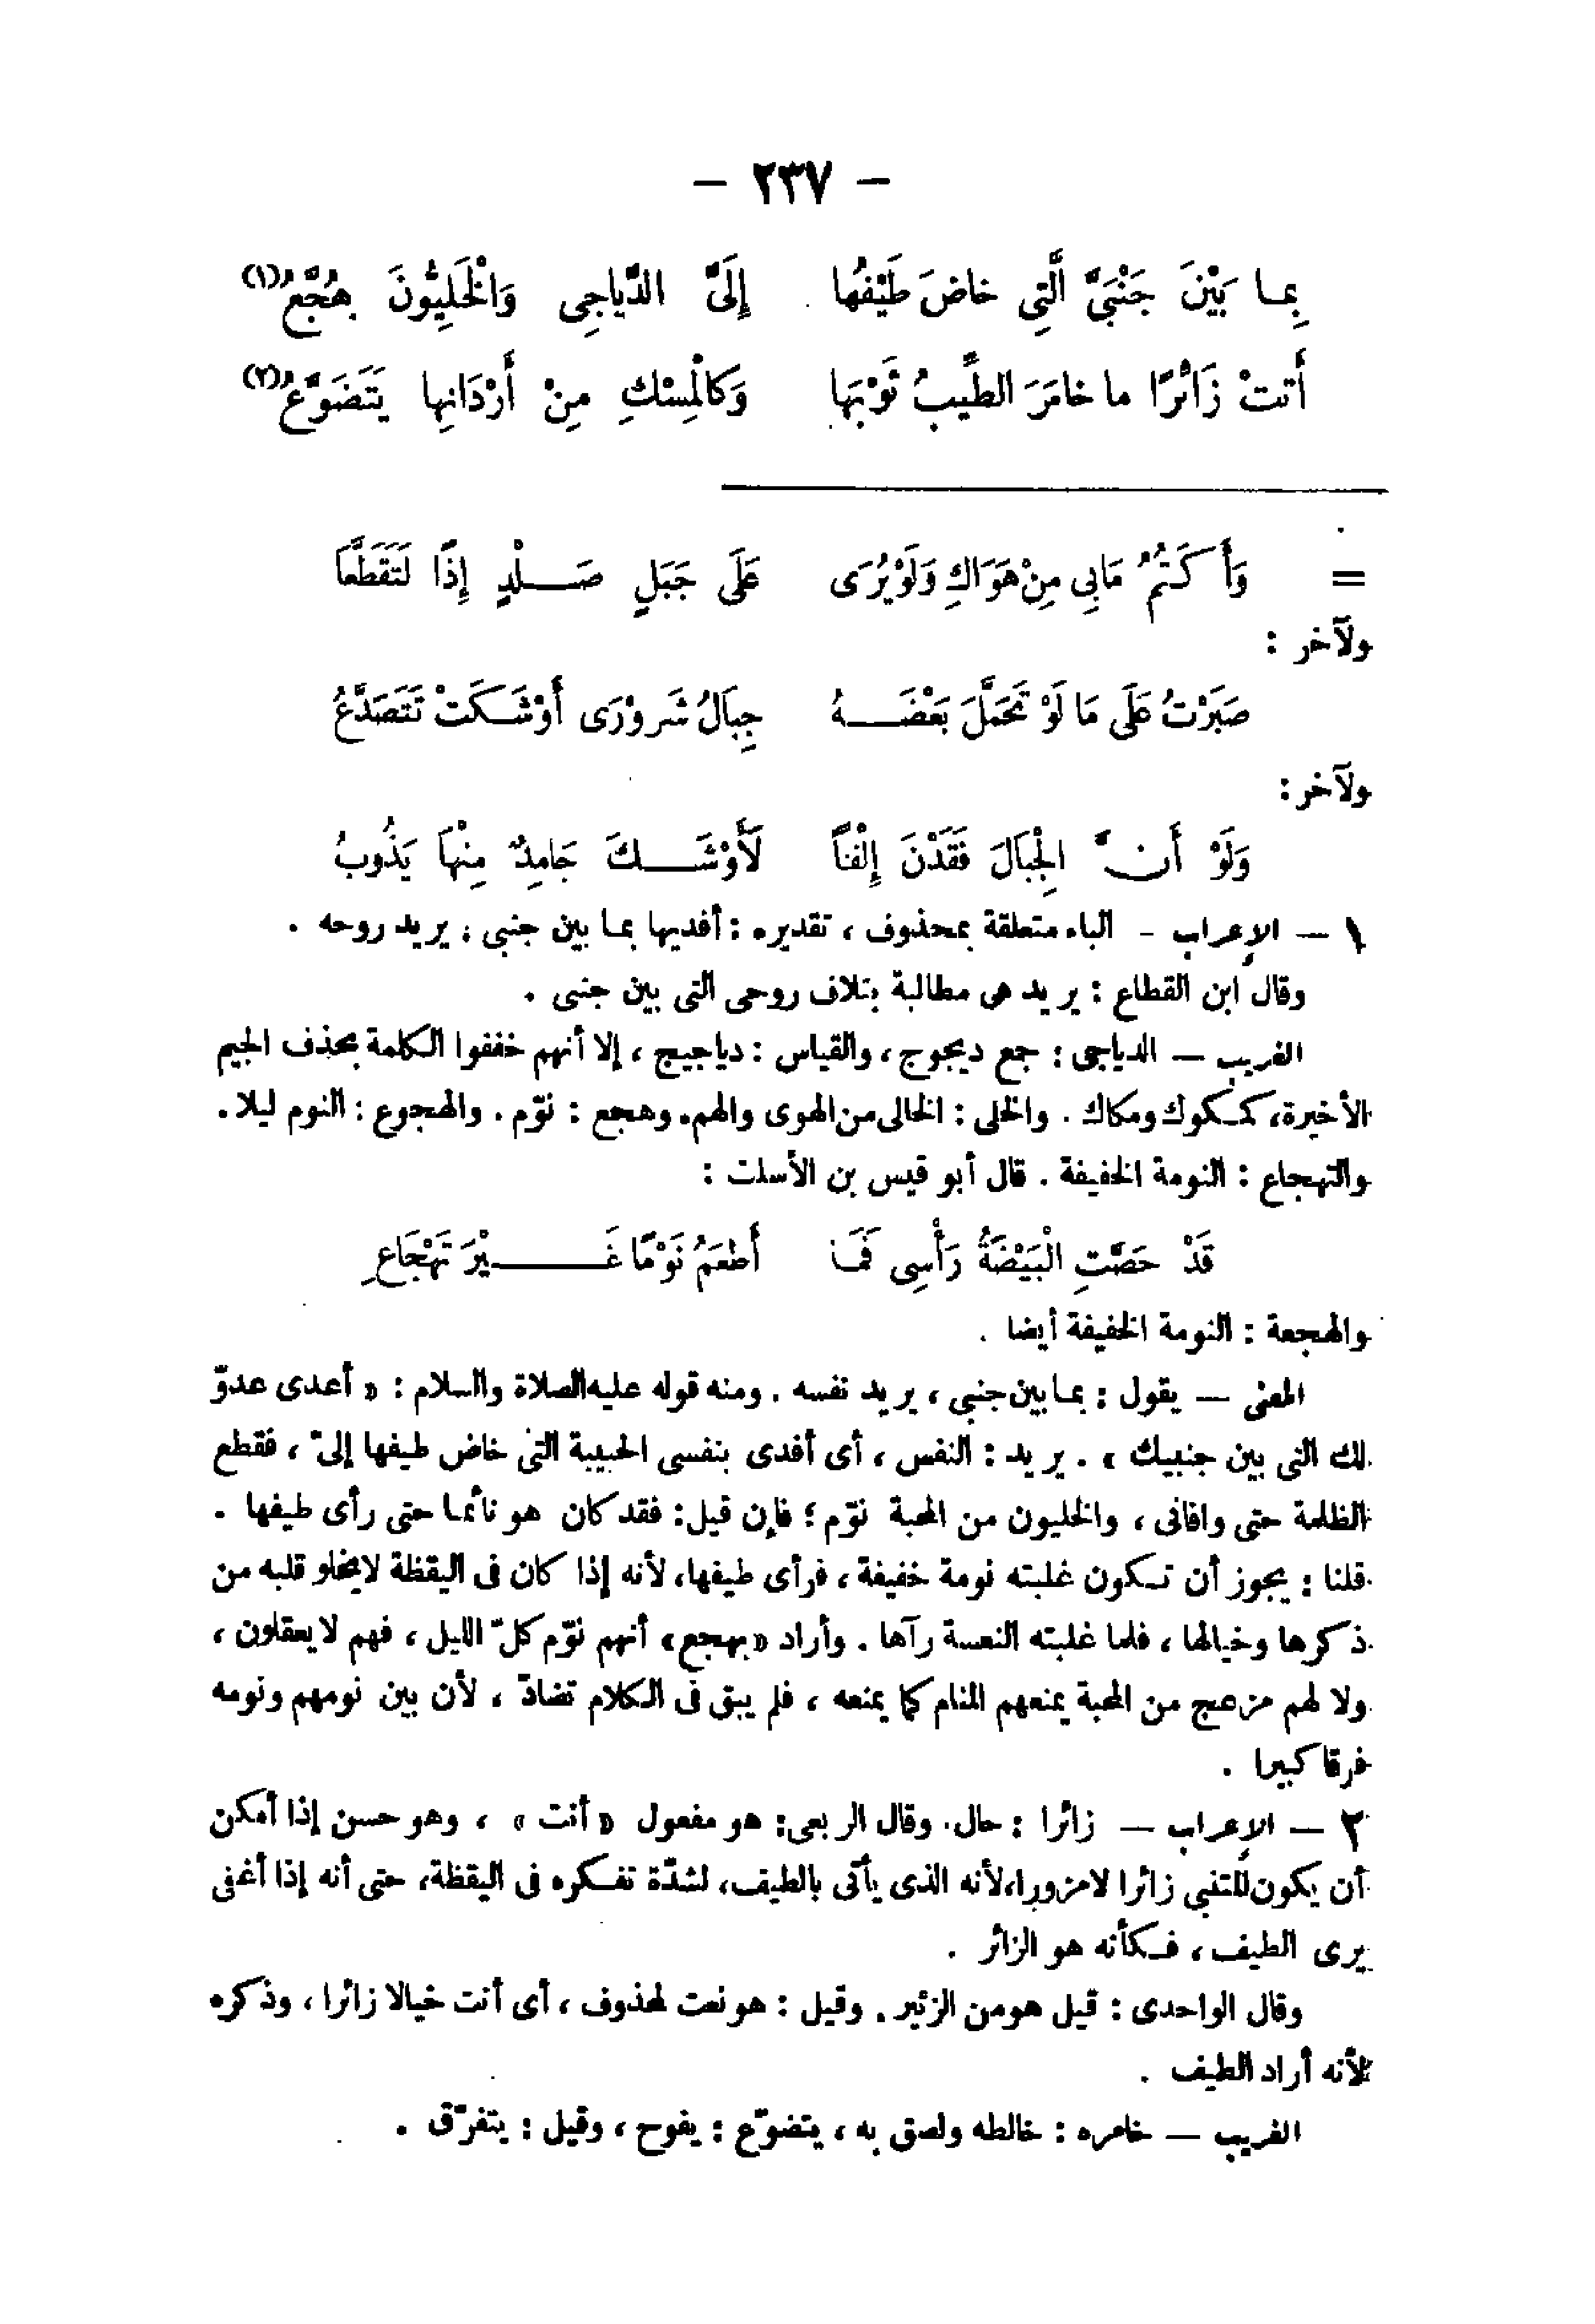 — ٢٣٧ —
بِمـا بَيْنَ جَنْبَيَّ الَّتِى خاضَ طَيْفُها إِلَىَّ الدَّياجِى وَالْخَلِيُّونَ هُجَّعُ(١)
أَتتْ زَائْرًا ما خامَرَ الطِّيبُ ثَوْبَهَا وَكالْمِسْكِ مِنْ أَرْدَانِها يَتَضَوَّعُ(٢)
= وَأَكَتُمُ مَابِى مِنْ هَوَاكِ وَلَوْ يُرَى عَلَى جَبَلٍ صَـــلْدٍ إِذًا لَتَقَطَّعَا
ولآخر :
صَبَرْتُ عَلَى مَا لَوْ تَحَمَّلَ بَعْضَـــهُ جِبَالُ شَرَوْرَى أَوْشَـكَتْ تَتَصَدَّعُ
ولآخر:
وَلَوْ أَنَّ الْجِبَالَ فَقَدْنَ إِلْفَاً لَأَوْشَـــكَ جَامِدٌ مِنْهَا يَذُوبُ
١ — الإعراب - الباء متعلقة بمحذوف ، تقديره : أفديها بمـا بين جنبى ، يريد روحه .
وقال ابن القطاع : يريد هى مطالبة بتلاف روحى التى بين جنبى .
الغريب — الدياجى : جمع ديجوج ، والقياس : دياجيج ، إلا أنهم خففوا الكلمة بحذف الجيم
الأخيرة، كمـكوك ومكاك . والخلى : الخالى من الهوى والهم. وهجع : نوّم . والهجوع : النوم ليلا .
والتهجاع : النومة الخفيفة . قال أبو قيس بن الأسلت :
قَدْ حَصَّتِ الْبَيْضَةُ رَأْسِى فَمَا أَطْعَمُ نَوْمًا غَـــــيْرَ تَهْجَاعِ
والهجعة : النومة الخفيفة أيضا .
المعنى — يقول : بمـا بين جنبى ، يريد نفسه . ومنه قوله عليه الصلاة والسلام : « أعدى عدوّ
لك التى بين جنبيك » . يريد : النفس ، أى أفدى بنفسى الحبيبة التى خاض طيفها إلىّ ، فقطع
الظلمة حتى وافانى ، والخليون من المحبة نوّم ؛ فإن قيل: فقد كان هو نائما حتى رأى طيفها .
قلنا : يجوز أن تـكون غلبته نومة خفيفة ، فرأى طيفها، لأنه إذا كان فى اليقظة لايخلو قلبه من
ذكرها وخيالها ، فلما غلبته النعسة رآها . وأراد «بهجع» أنهم نوّم كلّ الليل ، فهم لا يعقلون ،
ولا لهم مزعج من المحبة يمنعهم المنام كما يمنعه ، فلم يبق فى الكلام تضادّ ، لأن بين نومهم ونومه
فرقا كبيرا .
٢ — الإعراب — زائرا : حال. وقال الربعى: هو مفعول « أتت » ، وهو حسن إذا أمكن
أن يكون للمتنبى زائرا لامزورا، لأنه الذى يأتى بالطيف، لشدّة تفـكره فى اليقظة، حتى أنه إذا أغفى
يرى الطيف ، فـكأنه هو الزائر .
وقال الواحدى : قيل هو من الزئير . وقيل : هو نعت لمحذوف ، أى أتت خيالا زائرا ، وذكره
لأنه أراد الطيف .
الغريب — خامره : خالطه ولصق به ، يتضوّع : يفوح ، وقيل : يتفرّق .